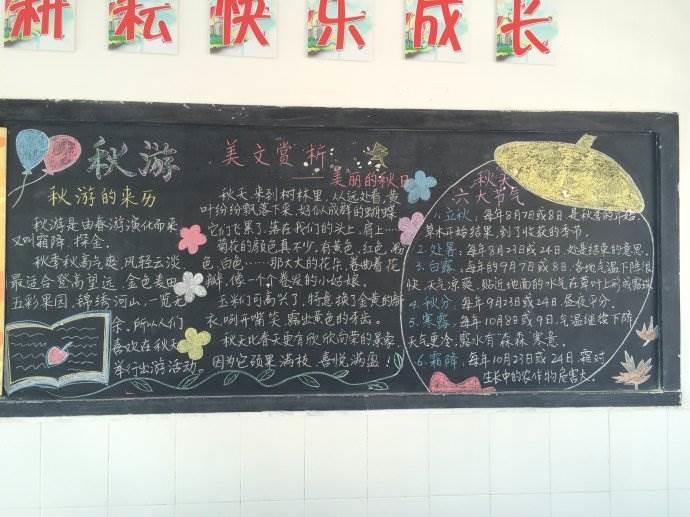 耕耘快乐成长
秋游
秋游的来历
秋游是由春游演化而来
又叫霜降、探金。
秋季秋高气爽,风轻云淡
最适合登高望远,金色麦田
五彩果园,锦绣河山,一览无
余,所以人们
喜欢在秋天
举行出游活动。
美文赏析
——美丽的秋日
秋天来到树林里,从远处看,黄
叶纷纷飘落下来,好似成群的蝴蝶
它们飞累了,落在我们的头上,肩上…
菊花的颜色真不少,有黄色,红色,粉
色,白色……那大大的花朵,卷曲着花
瓣,像一个个卷发的小姑娘。
玉米们可高兴了,特意换了金黄的新
衣,咧开嘴笑,露出黄色的牙齿。
秋天比春天更有欣欣向荣的景象
因为它硕果满枝,喜悦满盈!
秋季
六大节气
1.立秋,每年8月7日或8日是秋季的开始
草木开始结果,到了收获的季节。
2.处暑,每年8月23日或24日,处是结束的意思。
3.白露,每年的9月7日或8日,各地气温下降很
快,天气凉爽,贴近地面的水气在草叶上形成露珠
4.秋分,每年9月23日或24日,昼夜平分。
5.寒露,每年10月8日或9日,气温继续下降
天气更冷,露水有森森寒意。
6.霜降,每年10月23日或24日,霜对
生长中的农作物危害大。